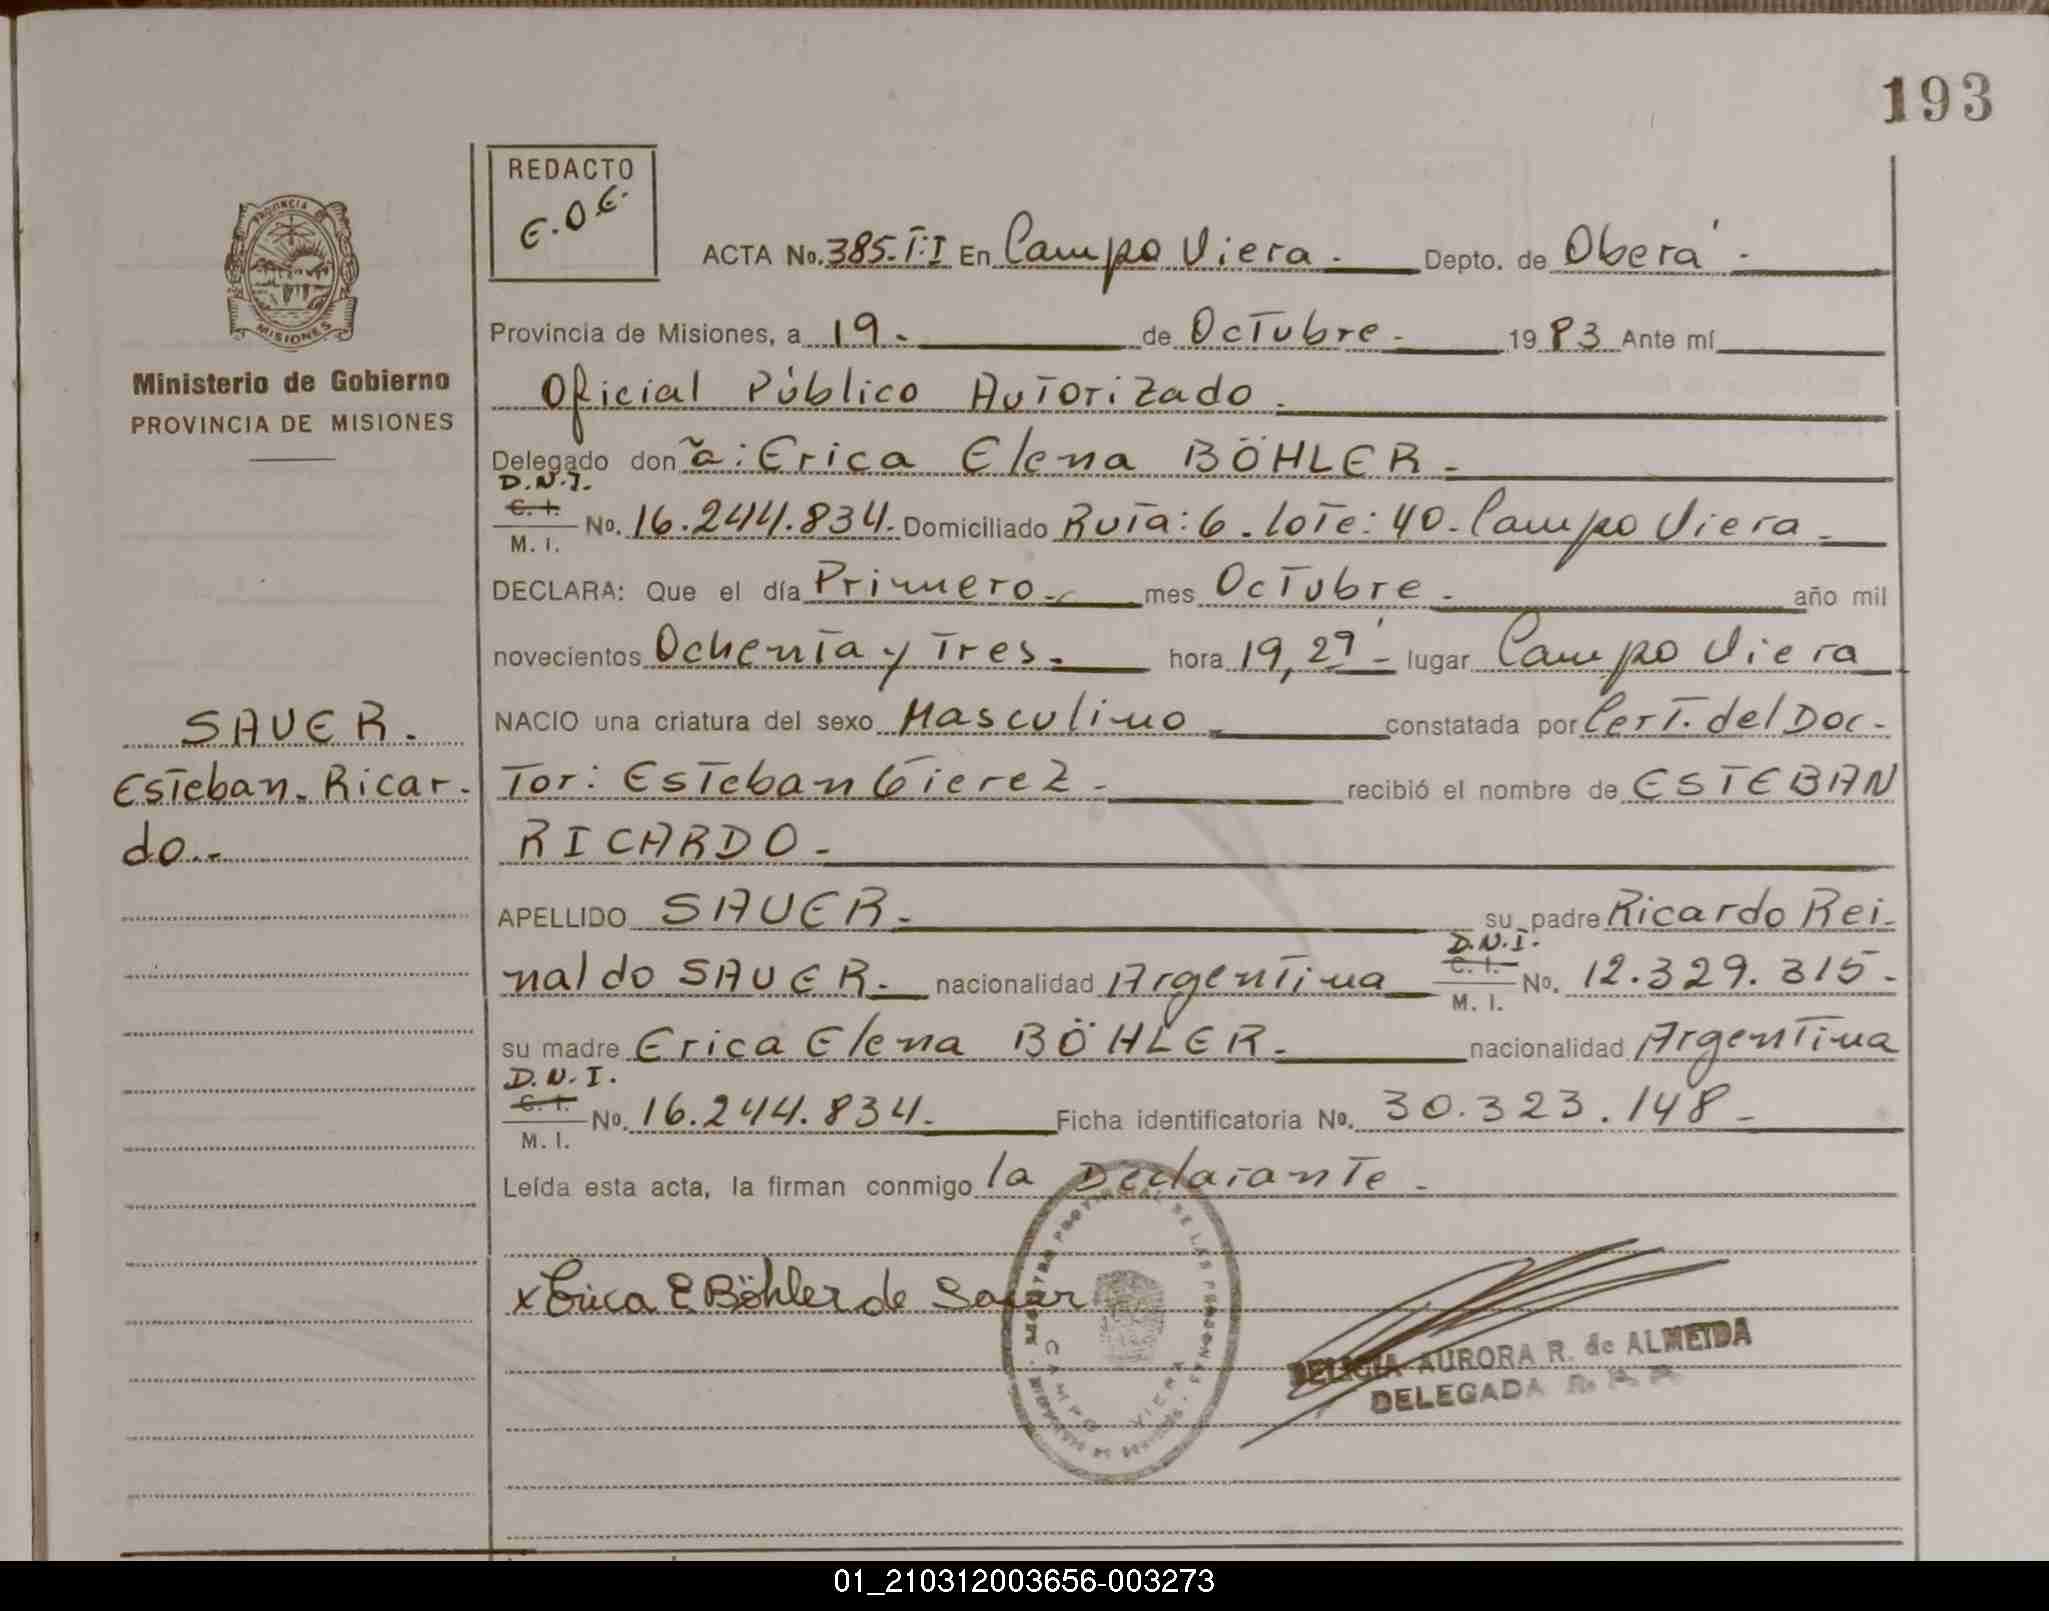 193
REDACTO
E.O.E.
ACTA No. 385.T:I En Campo Viera. Depto. de Oberá.
Provincia de Misiones, a 19. de Octubre. 1983 Ante mí
Ministerio de Gobierno
PROVINCIA DE MISIONES
Oficial Público Autorizado.
Delegado don ã: Erica Elena BÖHLER.
D.N.I.
C. I.
M. I.
No. 16.244.834. Domiciliado Ruta: 6. lote: 40. Campo Viera.
DECLARA: Que el día Primero. mes Octubre. año mil
novecientos Ochenta y Tres. hora 19,29' lugar Campo Viera
SAUER.
Esteban. Ricar.
do..
NACIO una criatura del sexo Masculino constatada por Cert. del Doc-
tor: Esteban Gierez. recibió el nombre de ESTEBAN
RICARDO.
APELLIDO SAUER. su padre Ricardo Rei-
D.N.I.
C. I.
M. I.
naldo SAUER. nacionalidad Argentina No. 12.329.315.
su madre Erica Elena BÖHLER. nacionalidad Argentina
D.N.I.
C. I.
M. I.
No. 16.244.834. Ficha identificatoria No. 30.323.148
Leída esta acta, la firman conmigo la Declarante.
x Erica E Böhler de Sauer
PROVINCIAL DE LAS PERSONAS
CAMPO VIERA
AURORA R. de ALMEIDA
DELEGADA
PROVINCIA
MISIONES
01_210312003656-003273